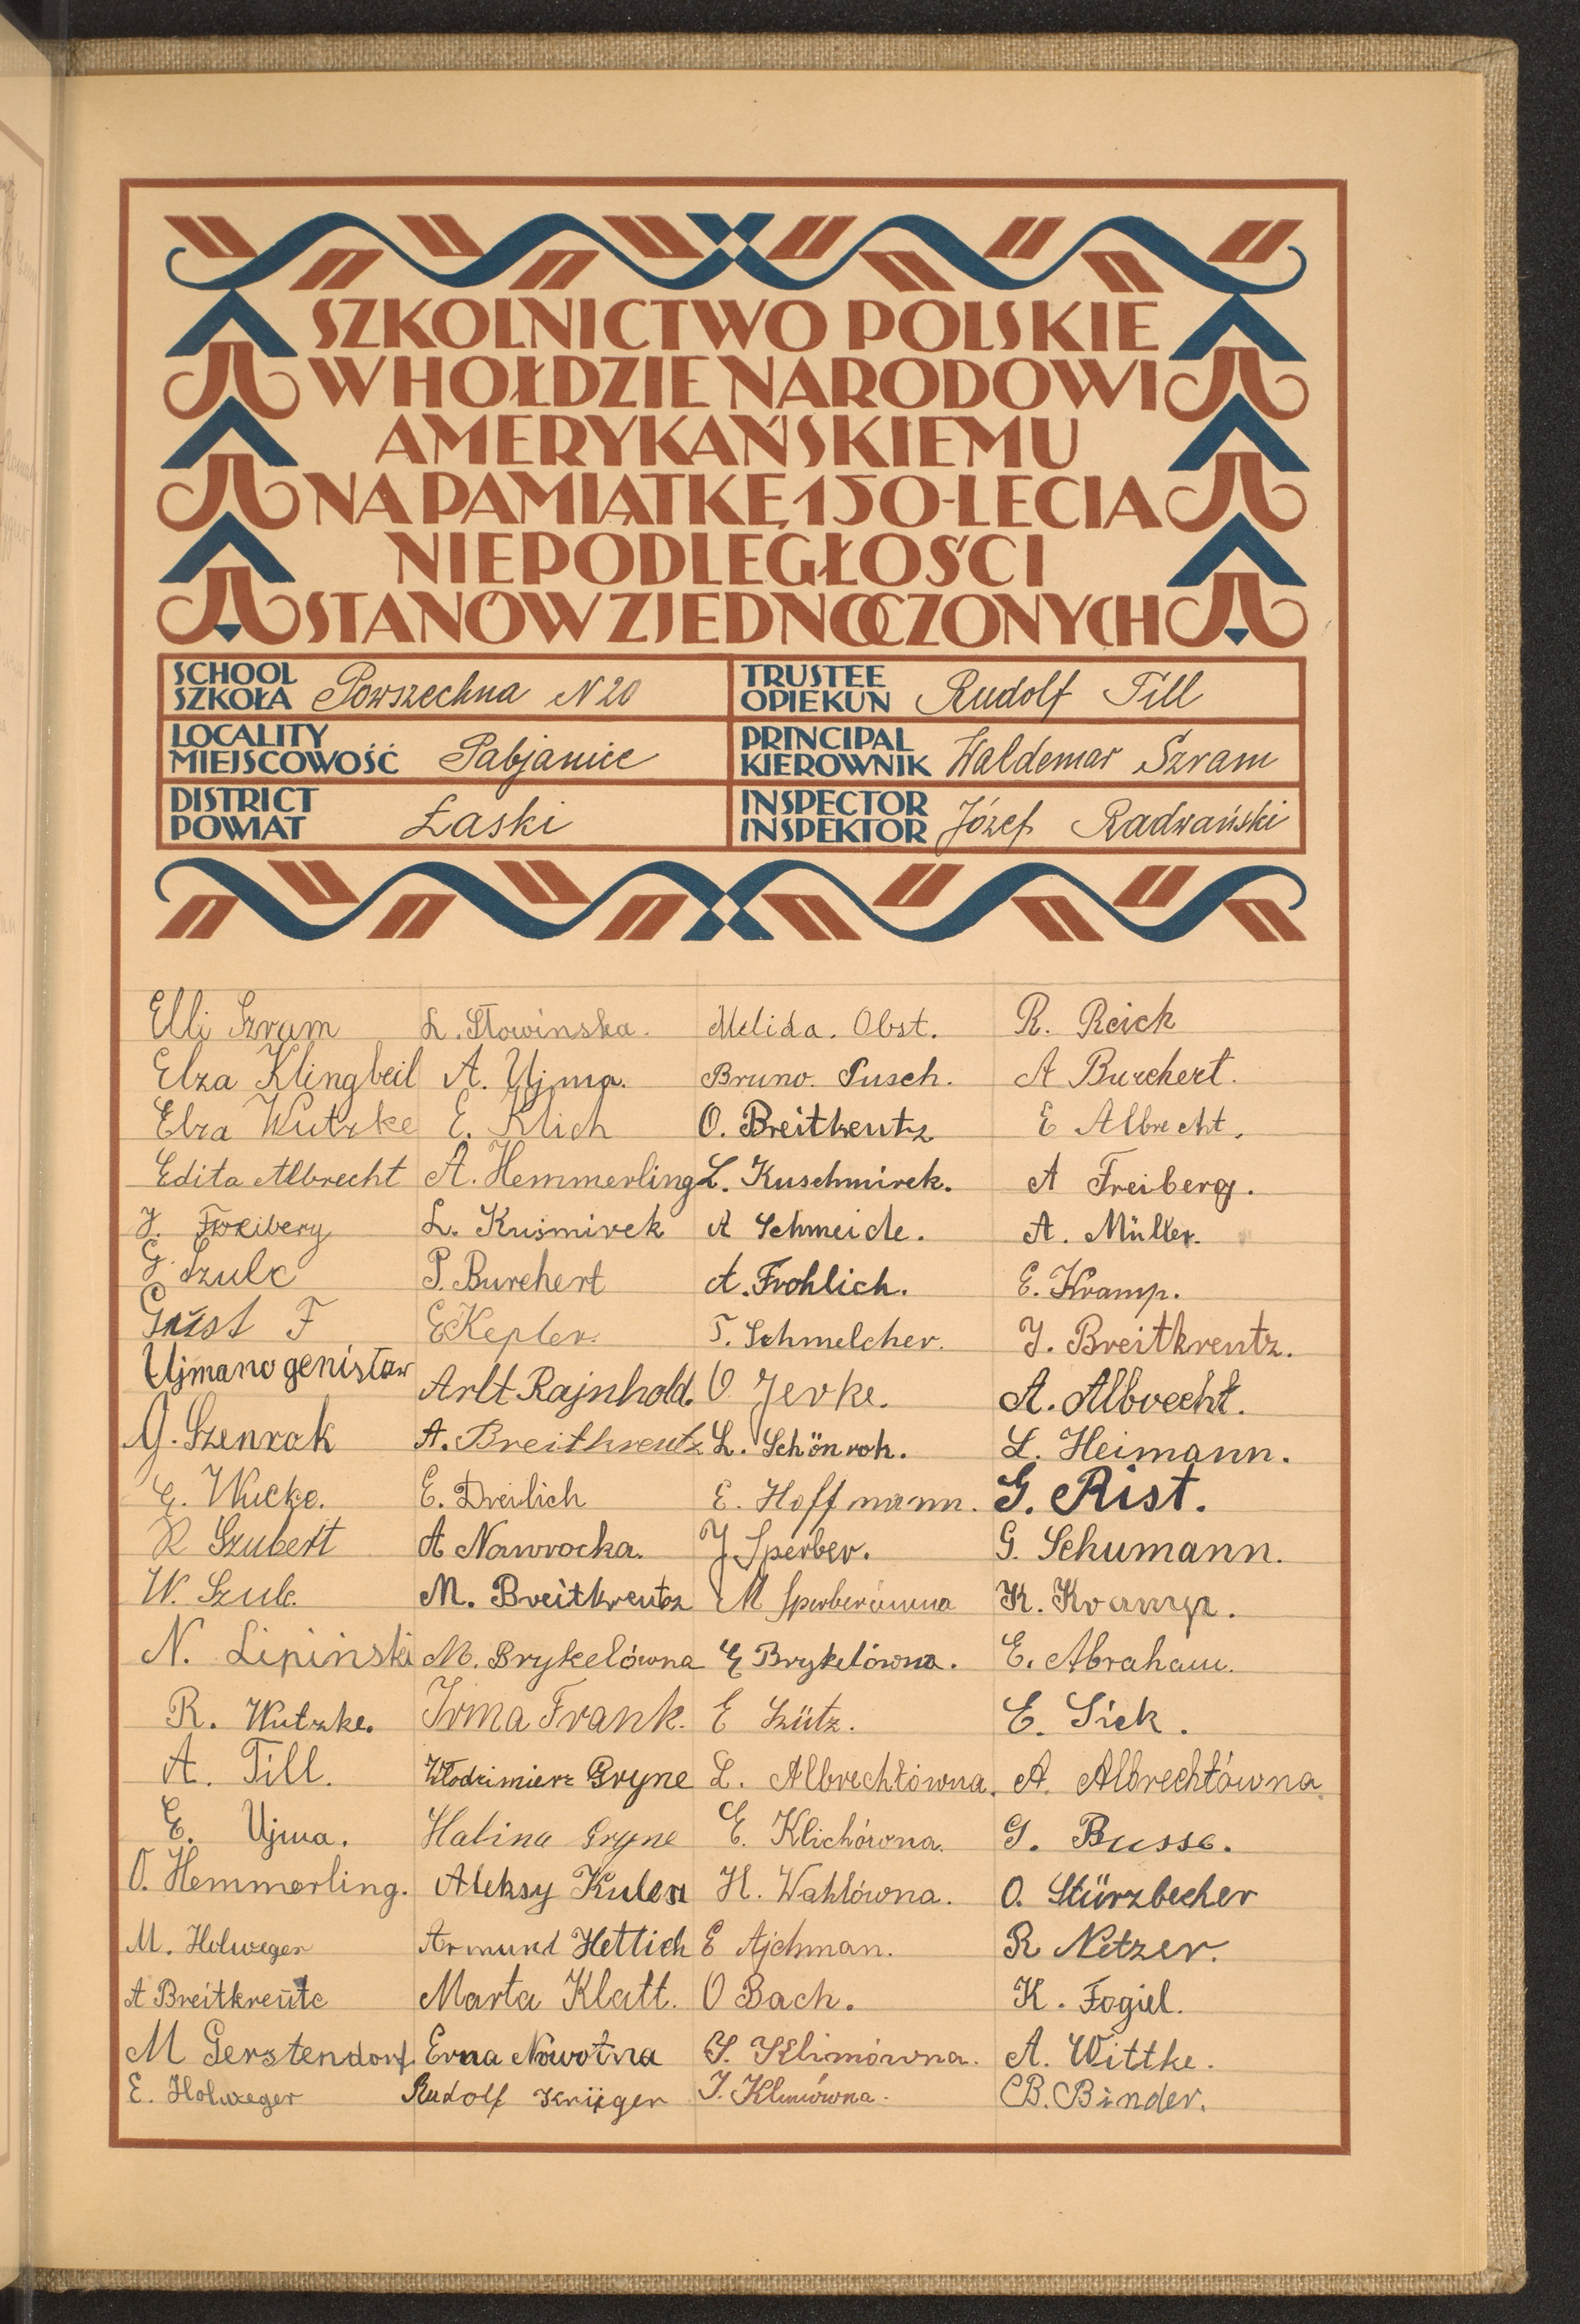 SZKOLNICTWO POLSKIE
W HOŁDZIE NARODOWI
AMERYKAŃSKIEMU
NA PAMIĄTKĘ 150-LECIA
NIEPODLEGŁOŚCI
STANÓW ZJEDNOCZONYCH
SCHOOL
SZKOŁA Powszechna N 20
TRUSTEE
OPIEKUN Rudolf Till
LOCALITY
MIEJSCOWOŚĆ Pabjanice
PRINCIPAL
KIEROWNIK Waldemar Szram
DISTRICT
POWIAT Łaski
INSPECTOR
INSPEKTOR Józef Radwański
Elli Szram L. Słowinska. Melida. Obst. R. Reick
Elza Klingbeil A. Ujma. Bruno. Pusch. A Burchert.
Elza Wutzke E. Klich O. Breitkeutz E Albrecht.
Edita Albrecht A. Hemmerling L. Kuschmirek. A Freiberg.
J. Freiberg L. Kuśmirek A Schmeide. A. Müller.
G. Szulc P. Burchert A. Frohlich. E. Kramp.
Grist F E Kepler. T. Schmelcher. J. Breitkreutz.
Ujmano genisław Arlt Rajnhold. O. Jerke. A. Albrecht.
G. Szenrok A. Breitkreutz L. Schönrok. L. Heimann.
E. Wucke. E. Dreilich E. Hoffmann. G. Rist.
R Szubert A Nawrocka. J Sperber. G. Schumann.
W. Szulc. M. Breitkreutz M Sperberówna K. Kramp.
N. Lipiński M. Brykelówna E Brykelówna. E. Abraham.
R. Wutzke. Irma Frank. E Szütz. E. Sick.
A. Till. Włodzimierz Gryne L. Albrechtówna. A. Albrechtówna.
E. Ujma. Halina Gryne E. Klichówna. G. Busse.
O. Hemmerling. Aleksy Kulesz H. Wahlówna. O. Stürzbecher
M. Holweger Armund Hettich E Ajchman. R Netzer.
A Breitkreutc Marta Klatt. O Bach. K. Fogiel.
M Gerstendorf. Erna Nowotna S. Klimówna. A. Wittke.
E. Holweger Rudolf Krüger J. Klimówna. B. Binder.